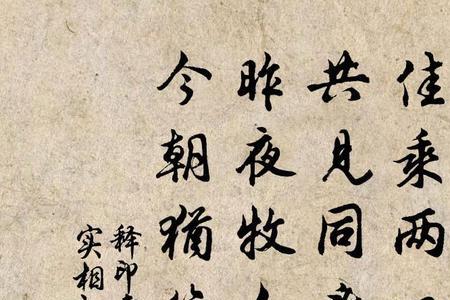 佳乘两
共見同
昨夜牧
今朝猶
释印
实相